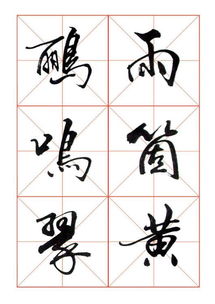 兩箇黄
鸝鳴翠